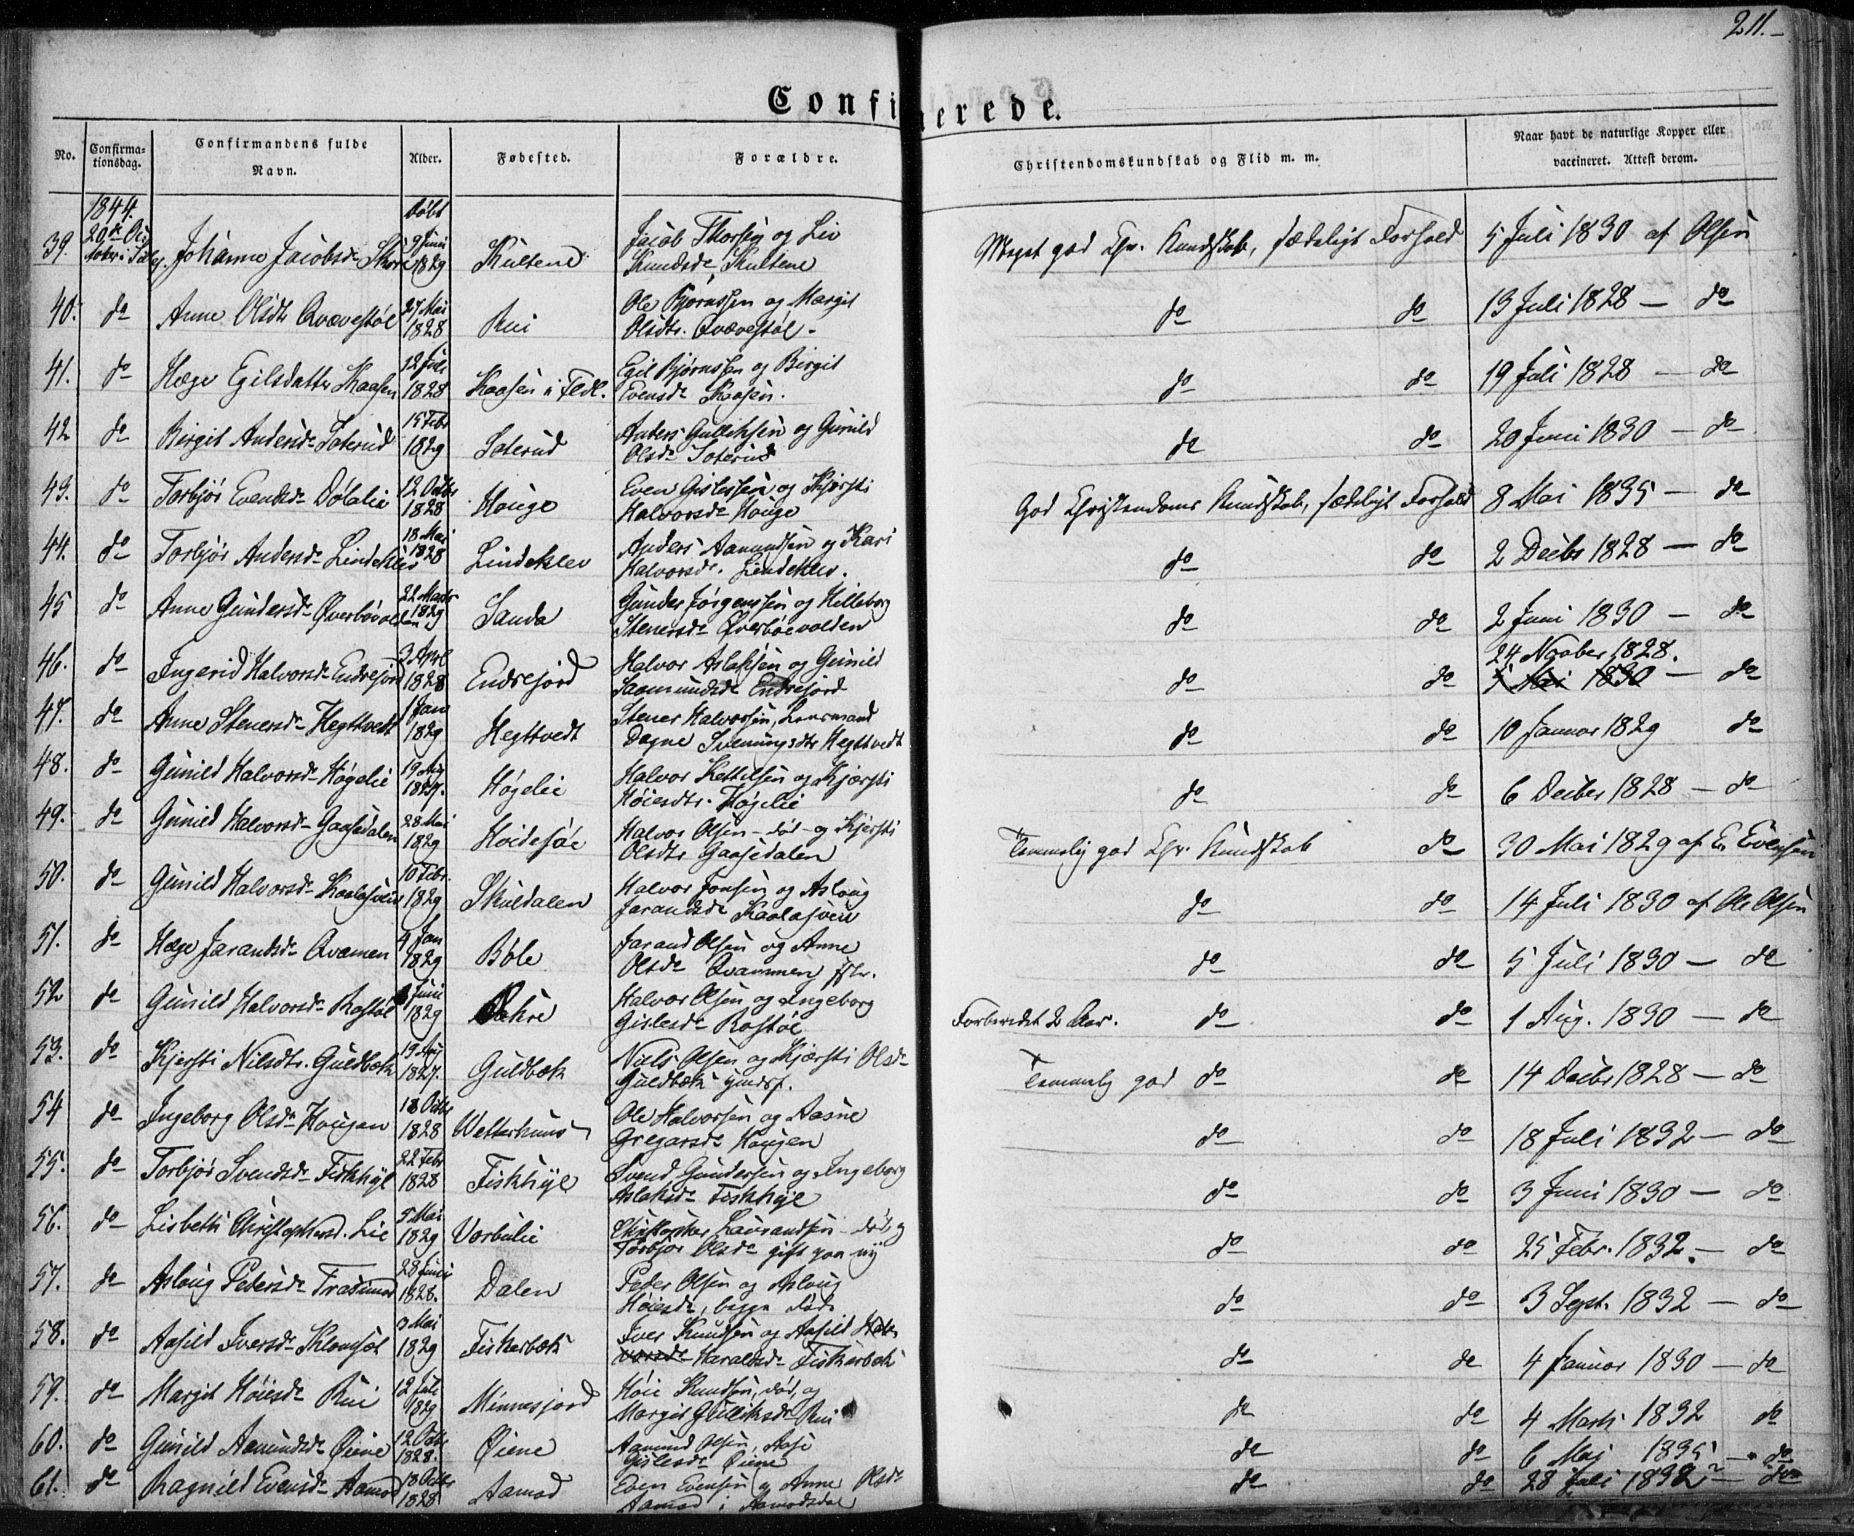 211.
Confirmerede.
No. Confirmationsdag. Confirmandens fulde Navn. Alder. Fødested. Forældre. Christendomskundskab og Flid m. m. Naar havt de naturlige Kopper eller vaccineret. Attest derom.
1844. døbt
39. 20de Johanne Jacobsd. 9 Juni 1829 Kultene Jacob Thorsen og Liv Knudsd. Kultene Meget god Chr. Kundskab, sædeligt Forhold 5 Juli 1830 af Olsen
40. do Anne Olsdtr Qvævestøl 27 Mai 1828 Rui Ole Bjørnssen og Margit Olsdtr. Qvævestøl. do do 13 Juli 1828 — do
41. do Hæge Egilsdatter Kaasen 12 Juli 1828 Kaasen i Tedl. Egil Bjørnssen og Birgit Evensd. Kaasen. do do 19 Juli 1828 — do
42 do Birgit Andersd. Soterud 15 Febr 1829 Soterud Anders Gulliksen og Gunild Olsd. Soterud do do 20 Juni 1830 — do
43. do Torbjør Evensd. Dølalie 12 Octbr 1828 Houge Even Gislessen og Kjersti Halvorsd. Houge God Christendoms Kundskab, sædeligt Forhold 8 Mai 1835 — do
44. do Torbjør Andersd. Lindeklev 18 Mai 1828 Lindeklev Anders Aamundsen og Kari Halvorsd. Lindeklev. do do 2 Decbr 1828 — do
45 do Anne Gundersd. Øverbøvolden 22 Marts 1829 Sanda Gunder Jørgenssen og Hilleborg Stenersd. Øverbøevolden do do 2 Juni 1830 — do
46. do Ingerid Halvorsd. Endrejord 3 April 1828 Endrejord Halvor Aslaksen og Gunild Saamundsd. Endrejord do do 24 Novber 1828. 5 Mai 1830 — do
47. do Anne Stenersd. Hegttvedt 1 Jan 1829 Hegttvedt Stener Halvorsen, Lensmand Dagne Sveinungsdtr Hegttvedt do do 10 Januar 1829 do
48. do Gunild Halvorsd. Høgelie 19 Aug 1827. Høgelie Halvor Kettilsen og Kjersti Høiesdtr. Høgelie do do 6 Decber 1828 — do
49. do Gunild Halvorsd. Gaasedalen 28 Mai 1829 Hoidesøe Halvor Olsen – død – og Kjersti Olsdtr Gaasedalen Temmelig god Chr. Kundskab do 30 Mai 1829 af E. Evensen
50. do Gunild Halvorsd. Kaalasveen 10 Febr. 1829 Skuldalen Halvor Jonsen og Aslaug Jarandsd. Kaalasveen do do 14 Juli 1830 af Ole Olsen
51. do Hæge Jarandsd. Qvamen 4 Jan 1829 Bøle Jarand Olsen og Anne Olsd. Qvammen do do 5 Juli 1830 — do
52 do Gunild Halvorsd. Rostøl Juni 1829 Halvor Olsen og Ingeborg Gislesd. Rostøl Forberedt 2 Aar. do do 1 Aug. 1830 — do
53. do Kjersti Nilsdtr. Guldbæk 19 Aug 1827. Guldbæk Niels Olsen og Kjersti Olsd. Guldbæk Temmelig god do do 14 Decbr 1828 — do
54 do Ingeborg Olsd. Hougen 18 Octbr 1828 Wetterhuus Ole Halvorsen og Aasne Gregarsd. Hougen do do 18 Juli 1832 — do
55. do Torbjør Svendsd. Fiskhyl 22 Febr 1828 Fiskhyl Svend Gundersen og Ingeborg Aslaksd. Fiskhyl do do 3 Juni 1830 — do
56. do Lisbeth Christophersd. Lie 5 Mai 1829 Vorbulie Christopher Lavrandsen – død og Torbjør Olsd. gift paa ny do do 25 Febr. 1832. — do
57. do Aslaug Petersd. 28 Juni 1828. Dalen Peder Olsen og Aslaug Høiesd., begge døde do do 3 Sept. 1832 — do
58. do Aasild Iversd. 3 Mai 1829 Fiskerbæk Iver Knudsen og Aasild Halvorsd. Haraldsd. Fiskerbæk do do 4 Januar 1830 — do
59. do Margit Høiesd. Rui 12 Juli 1829 Minnesjord Høie Knudsen, død, og Margit Gulliksd. Rui do do 4 Marts 1832 do
60. do Gunild Aamundsd. Øiene 12 Octbr 1828. Øiene Aamund Olsen, Aase Gislesd. Øiene do do 6 Mai 1835 — do
61. do Ragnild Evensd. Aamod 18 Octbr 1828 Aamod Even Evensen og Anne Olsd. Aamod i Aamodsdal do do 28 Juli 1832 — do